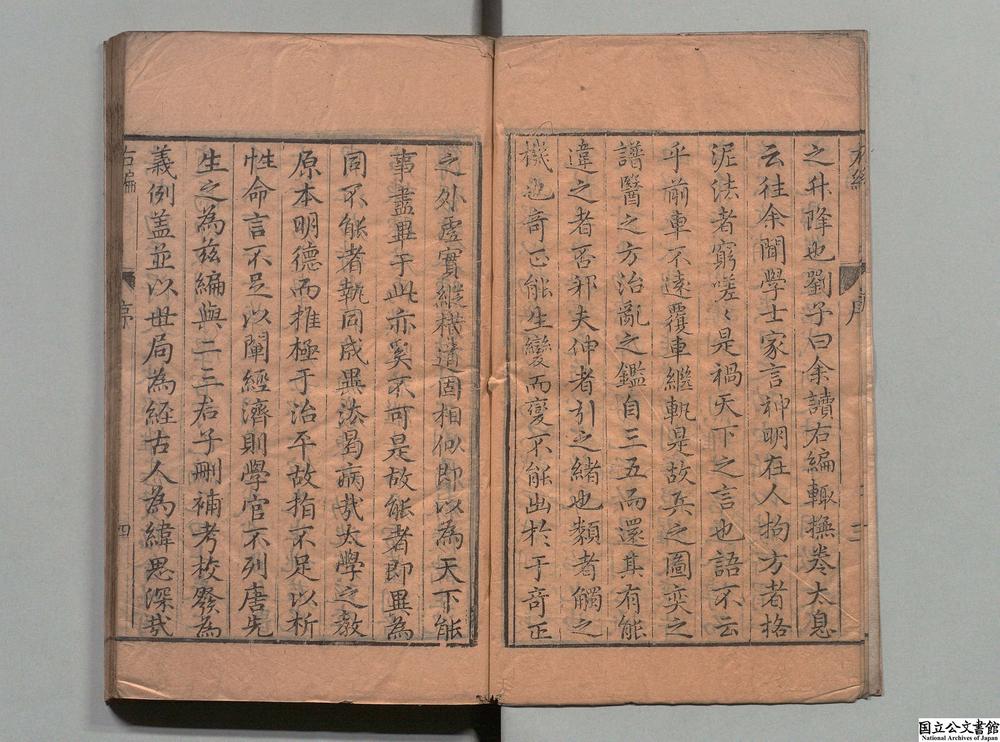 右編
序
之升降也劉子曰余讀右編輙撫卷大息
云往余聞學士家言神明在人拘方者格
泥法者窮嗟〻是禍天下之言也語不云
乎前車不遠覆車繼軌是故兵之圖奕之
譜醫之方治亂之鑑自三五而還其有能
違之者否邪夫伸者引之緒也類者觸之
機也奇正能生變而變不能出於于奇正
之外虛實縱橫道固相似即以為天下能
事盡畢于此亦奚不可是故能者即異為
同不能者執同成異法曷病哉大學之教
原本明德而推極于治平故指不足以析
性命言不足以闡經濟則學官不列唐先
生之為茲編與二三君子刪補考校發為
義例盖並以世局為經古人為緯思深哉
右編
序
四
国立公文書館
National Archives of Japan